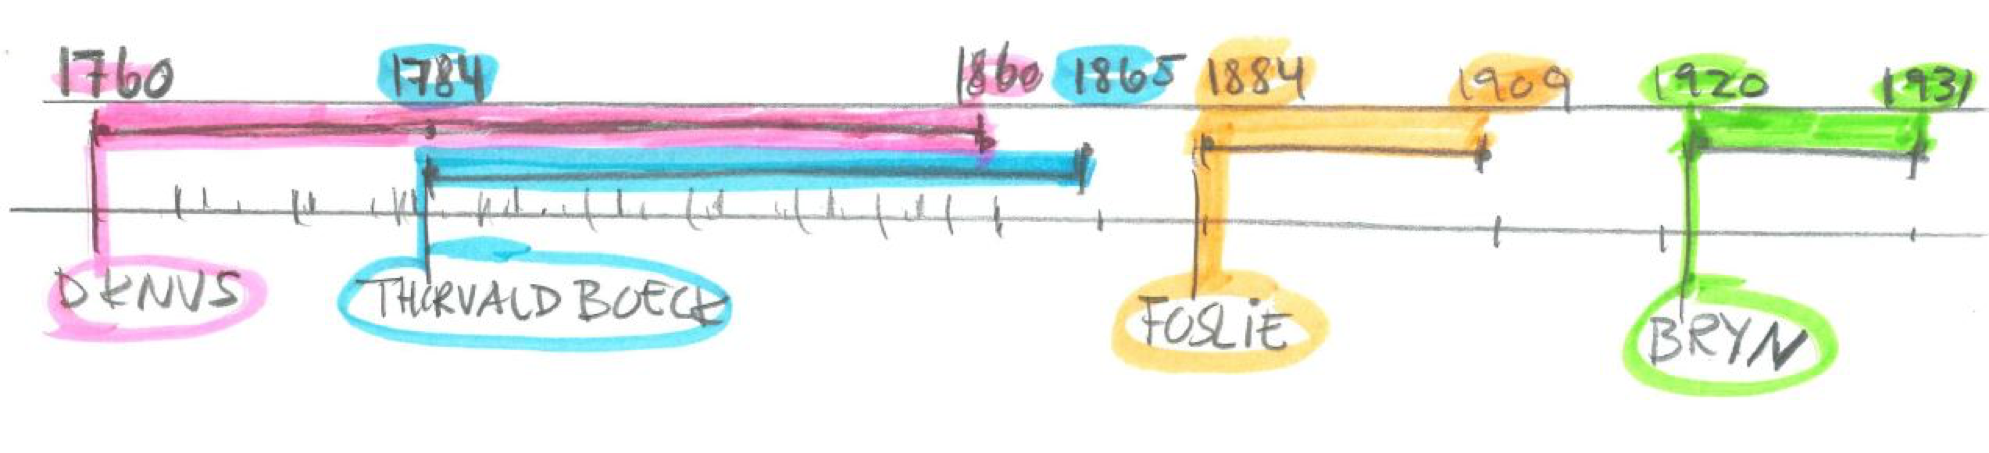 1760 1784 1860 1865 1884 1909 1920 1931
DKNVS THORVALD BOECK FOSLIE BRYN